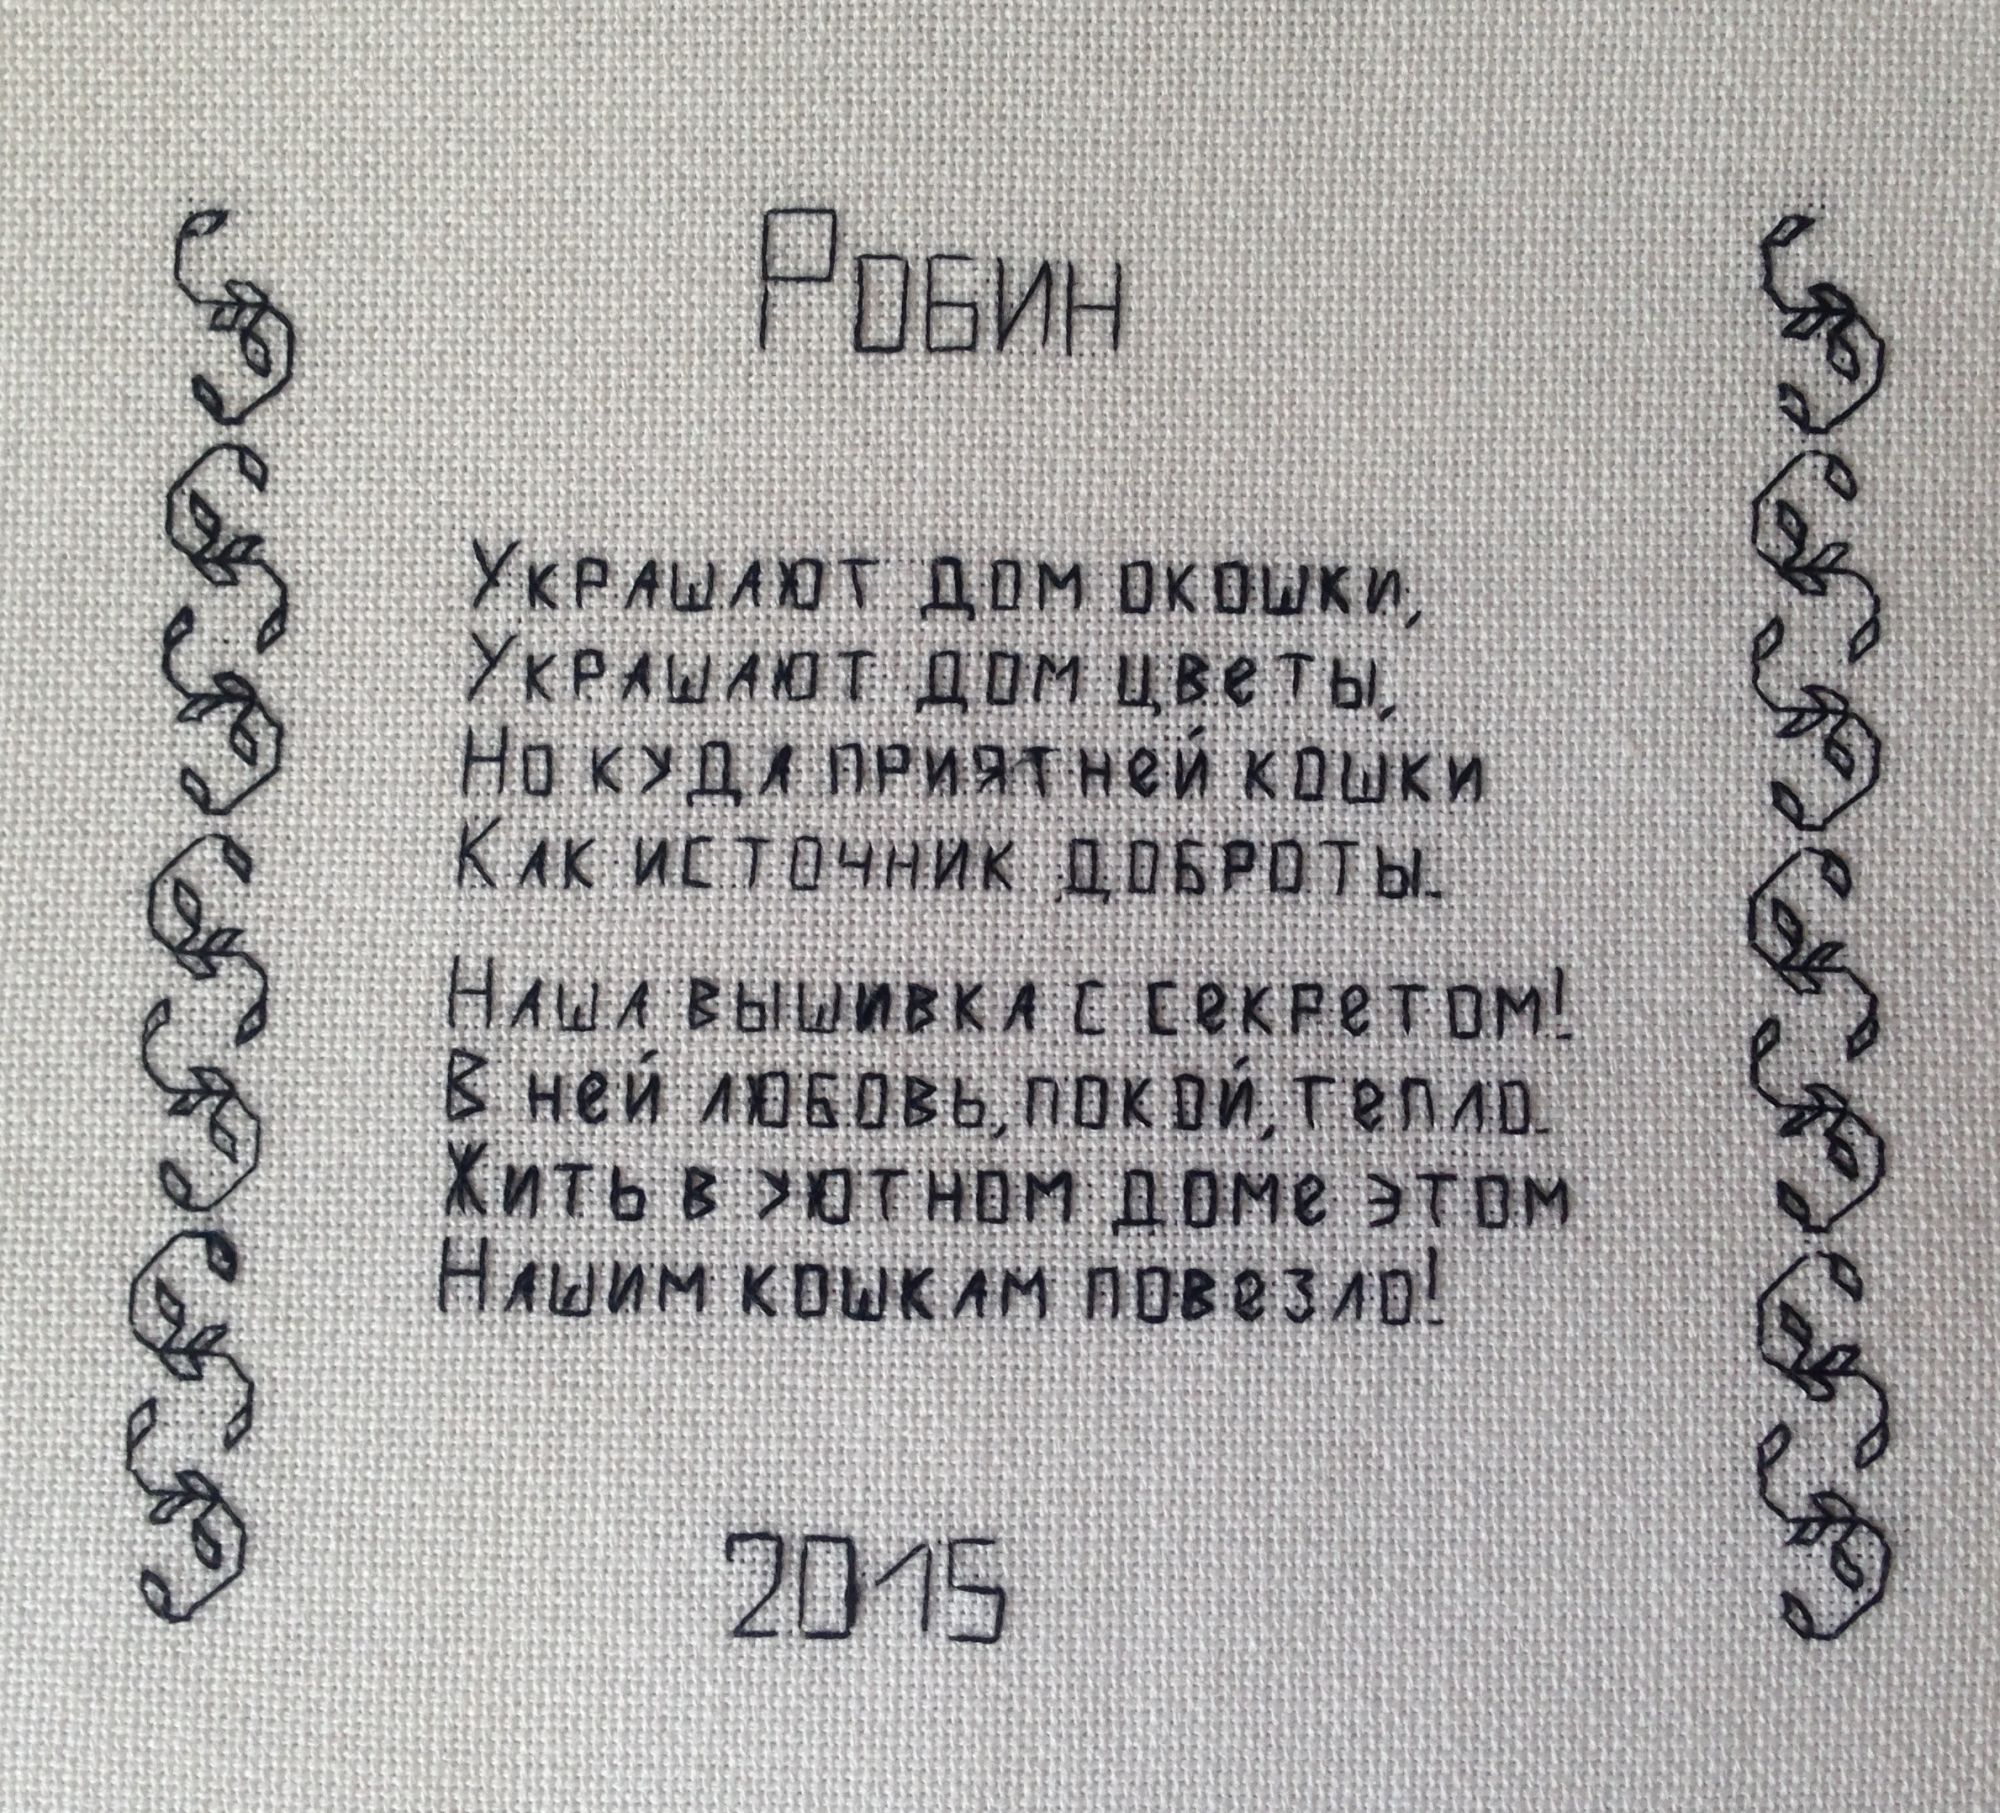 Робин
Украшают дом окошки,
Украшают дом цветы,
Но куда приятней кошки
Как источник доброты.
Наша вышивка с секретом!
В ней любовь, покой, тепло.
Жить в уютном доме этом
Нашим кошкам повезло!
2015